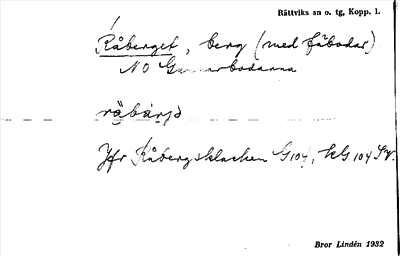 Rättviks sn o. tg, Kopp. l.
Råberget, berg (med fäbodar)
N O Gunnarbodarna
råbärjə
Jfr Råbergsklacken G 104, kG 104 SV.
Bror Lindén 1932